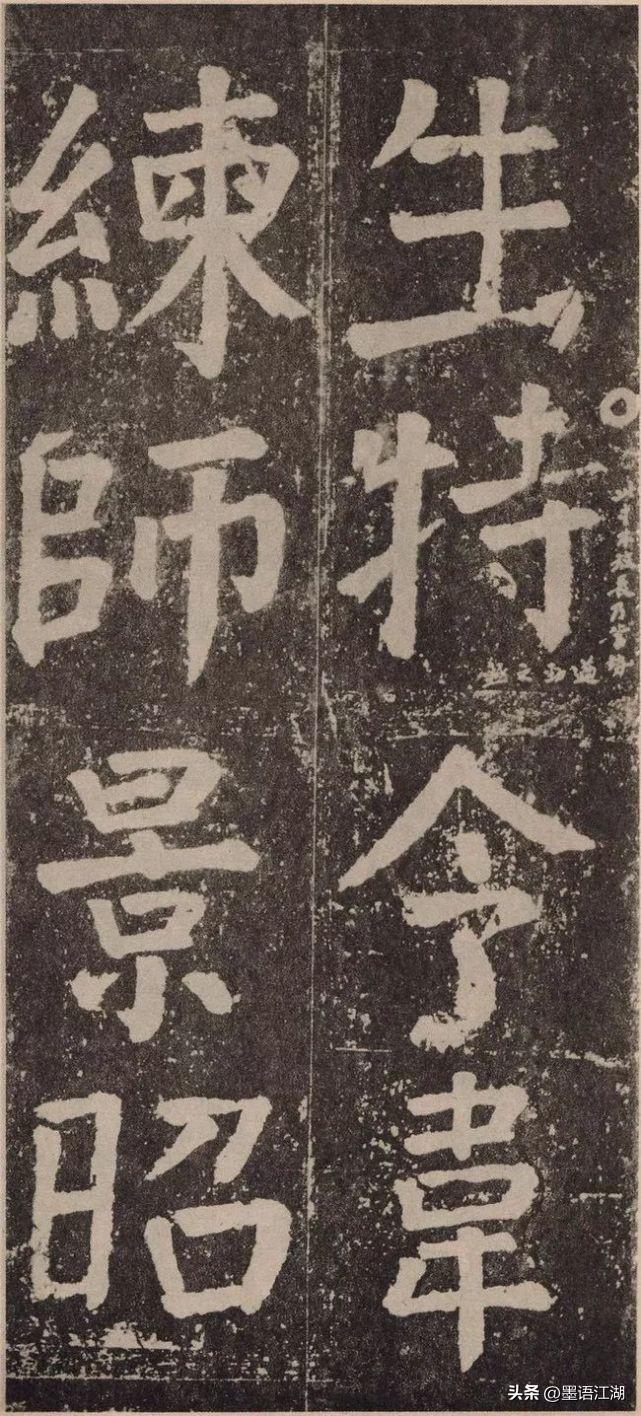 生特令韋
練師景昭
头条 @墨语江湖